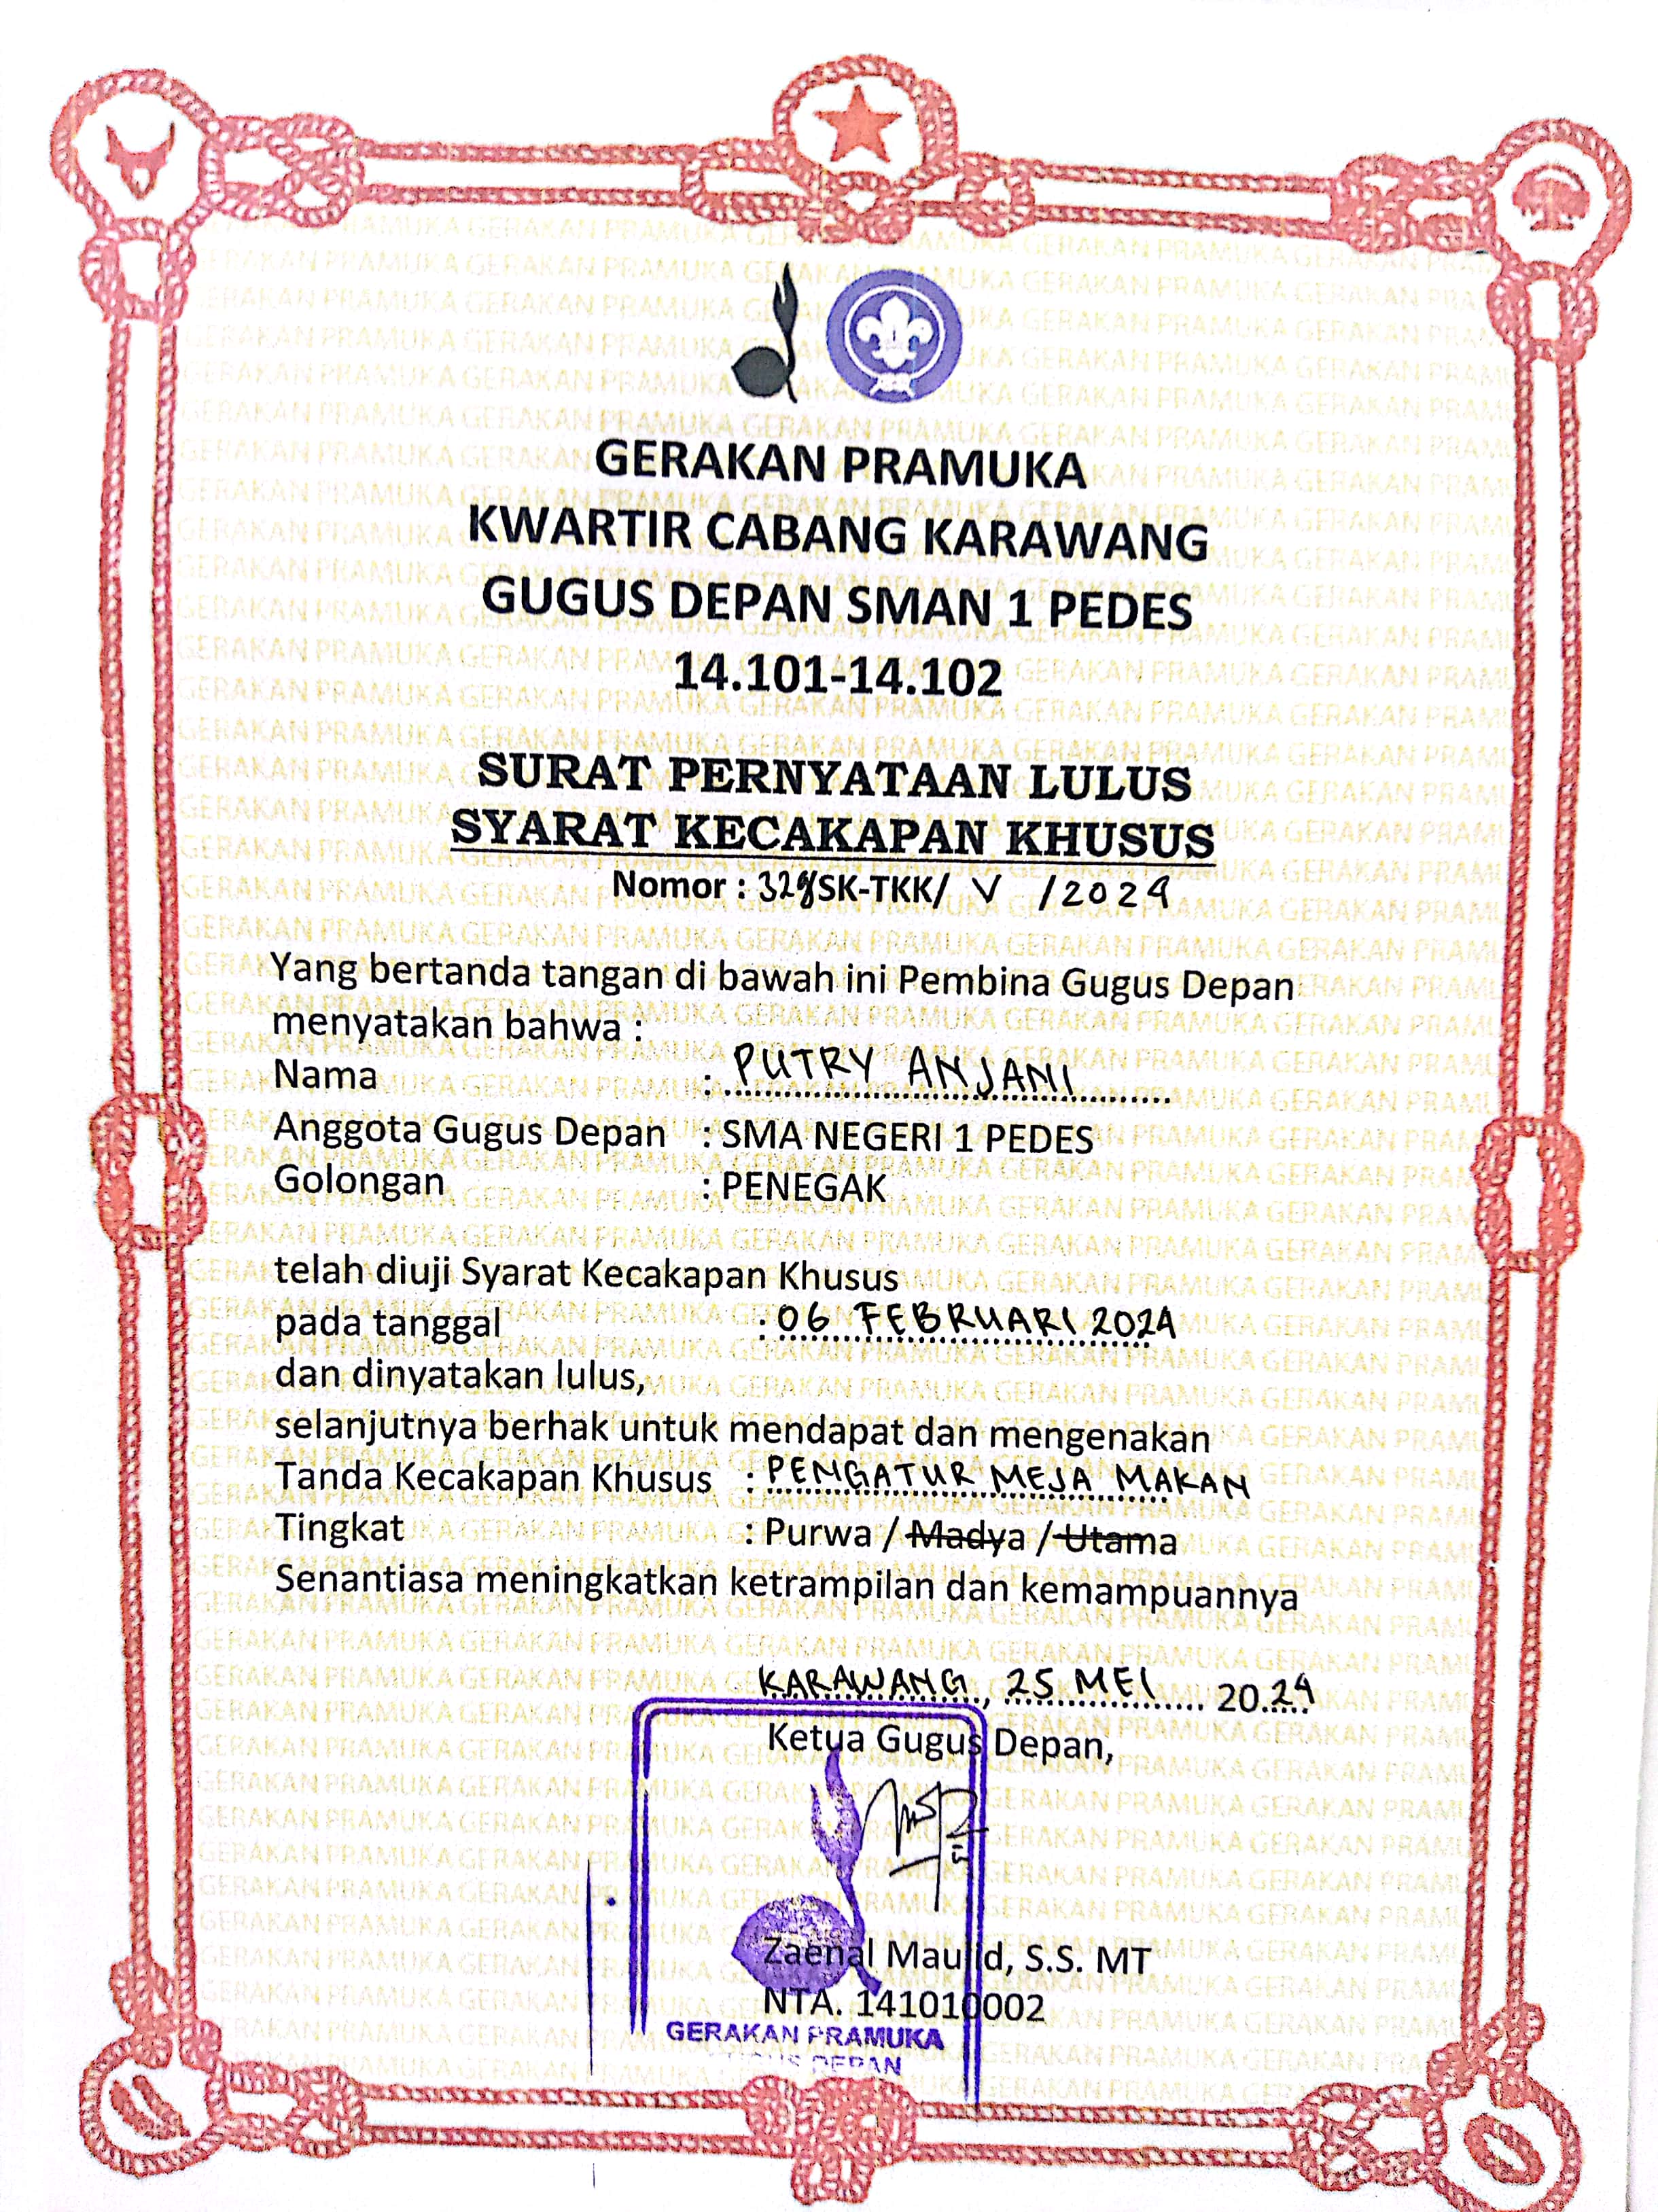 GERAKAN PRAMUKA
KWARTIR CABANG KARAWANG
GUGUS DEPAN SMAN 1 PEDES
14.101-14.102
SURAT PERNYATAAN LULUS
SYARAT KECAKAPAN KHUSUS
Nomor : 328/SK-TKK/ V /2024
Yang bertanda tangan di bawah ini Pembina Gugus Depan
menyatakan bahwa :
Nama : PUTRY ANJANI
Anggota Gugus Depan : SMA NEGERI 1 PEDES
Golongan : PENEGAK
telah diuji Syarat Kecakapan Khusus
pada tanggal : 06 FEBRUARI 2024
dan dinyatakan lulus,
selanjutnya berhak untuk mendapat dan mengenakan
Tanda Kecakapan Khusus : PENGATUR MEJA MAKAN
Tingkat : Purwa / Madya / Utama
Senantiasa meningkatkan ketrampilan dan kemampuannya
KARAWANG, 25 MEI 2024
Ketua Gugus Depan,
Zaenal Maulid, S.S. MT
NTA. 141010002
GERAKAN PRAMUKA
GUGUS DEPAN